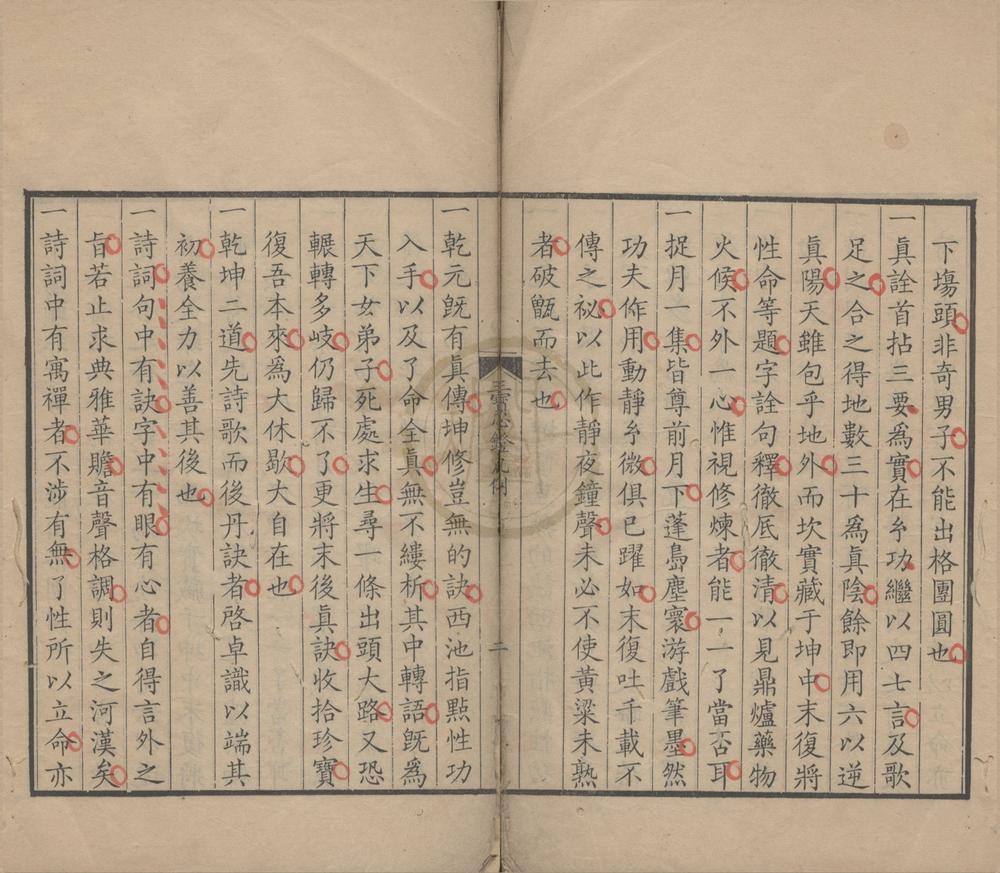 下塲頭非奇男子不能出格團圓也
一眞詮首拈三要爲實在𢆯功繼以四七言及歌
足之合之得地數三十爲眞陰餘即用六以逆
眞陽天雖包乎地外而坎實藏于坤中末復將
性命等題字詮句釋徹底徹清以見鼎爐藥物
火候不外一心惟視修煉者能一一了當否耳
一捉月一集皆尊前月下蓬島塵寰游戲筆墨然
功夫作用動靜𢆯微俱已躍如末復吐千載不
傳之祕以此作靜夜鐘聲未必不使黃粱未熟
者破甑而去也
二
一乾元旣有眞傳坤修豈無的訣西池指點性功
入手以及了命全眞無不縷析其中轉語旣爲
天下女弟子死處求生尋一條出頭大路又恐
輾轉多岐仍歸不了更將末後眞訣收拾珍寶
復吾本來爲大休歇大自在也
一乾坤二道先詩歌而後丹訣者啓卓識以端其
初養全力以善其後也
一詩詞句中有訣字中有眼有心者自得言外之
旨若止求典雅華贍音聲格調則失之河漢矣
一詩詞中有寓禪者不涉有無了性所以立命亦